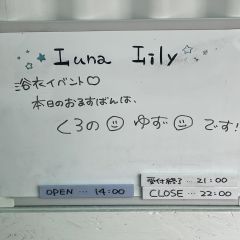 Luna Lily
浴衣イベント♡
本日のおるすばんは、
くるの☺ ゆず☺です!
OPEN … 14:00
受付終了 … 21:00
CLOSE … 22:00